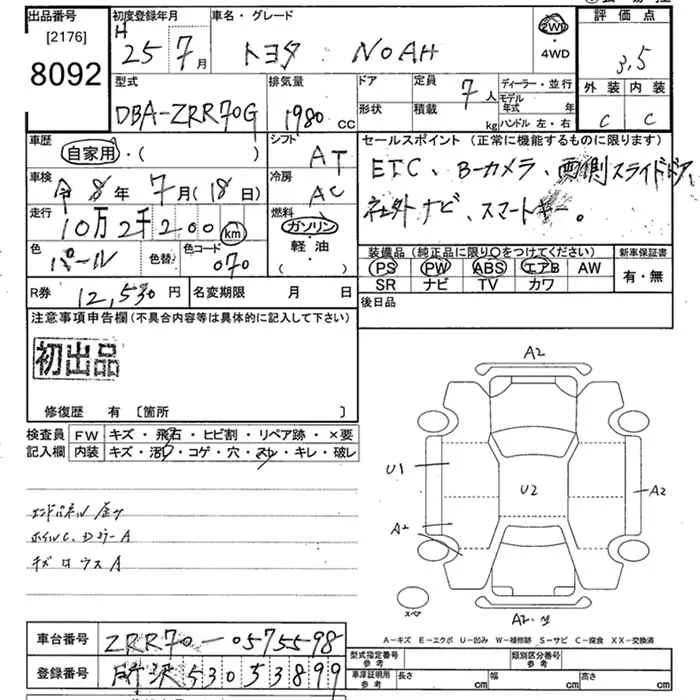 出品番号 初度登録年月 車名・グレード 2WD 評価点
[2176] H 25年 7月 トヨタ NOAH ・4WD 3.5
8092
型式 排気量 ドア 定員 ディーラー・並行 外装 内装
DBA-ZRR70G 1980cc 形状 積載 7人 kg モデル年式 年 ハンドル 左・右 C C
車歴 自家用・( ) シフト AT セールスポイント(正常に機能するものに限ります)
車検 令8年7月(18日) 冷房 AC ETC、Bーカメラ、両側スライドドア、
走行 10万2千200km 燃料 ガソリン 社外ナビ、スマートキー。
色 パール 色替 色コード 070 軽・油 ( )
装備品(純正品に限り〇をつけてください) 新車保証書
PS PW ABS エアB AW 有・無
SR ナビ TV カワ
R券 12,530円 名変期限 月 日 後日品
注意事項申告欄(不具合内容等は具体的に記入して下さい)
初出品
修復歴 有 〔箇所 〕
検査員 FW キズ・飛石・ヒビ割・リペア跡・×要
記入欄 内装 キズ・汚・コゲ・穴・スレ・キレ・破レ
A2
U1
U2
A2
A2
ホイルC、Dカラー A
スペア
A2
A-キズ E-エクボ U-凹み W-補修跡 S-サビ C-腐食 XX-交換済
車台番号 ZRR70-0575598
型式指定番号 参考 類別区分番号 参考
登録番号 所沢 530 そ 3899
車庫証明用 参考 長さ cm 幅 cm 高さ cm